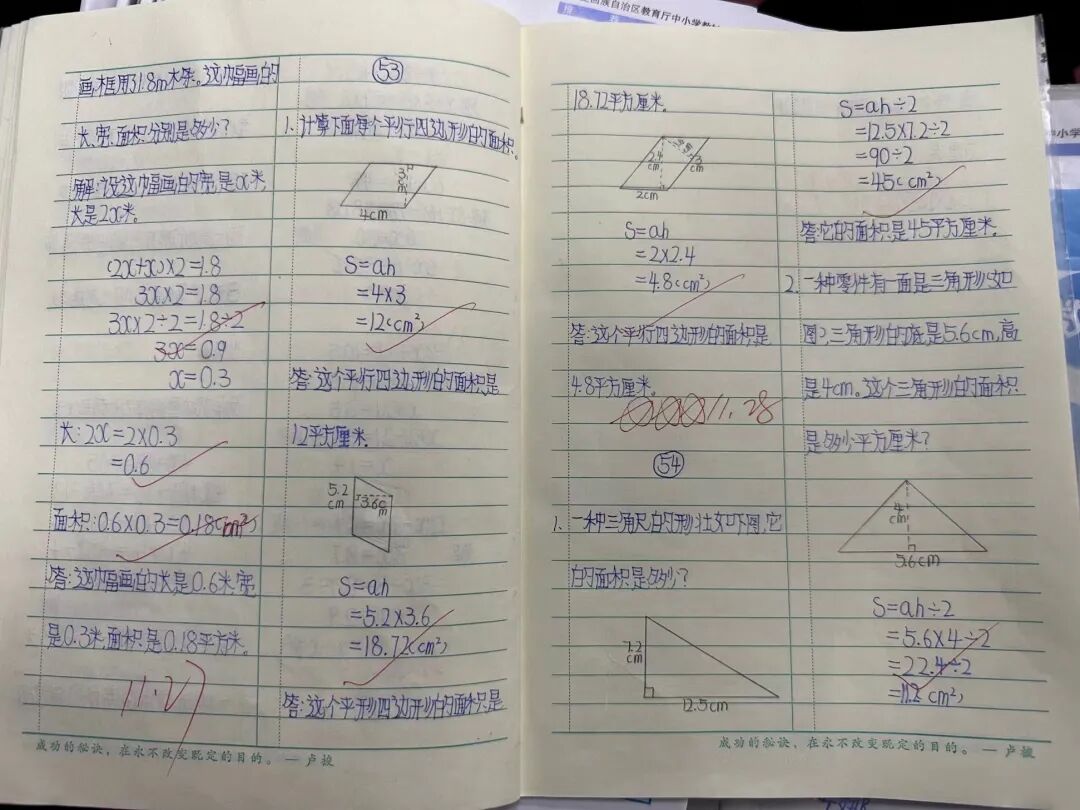 回族自治区教育厅中小学教材
画框用了1.8m木条。这幅画的
长、宽、面积分别是多少？
解：设这幅画的宽是x米,
长是2x米。
(2x+x)×2=1.8
3x×2=1.8
3x×2÷2=1.8÷2
3x=0.9
x=0.3
长：2x=2×0.3
=0.6
面积：0.6×0.3=0.18(m²)
答：这幅画的长是0.6米,宽
是0.3米,面积是0.18平方米。
11.27
成功的秘诀，在永不改变既定的目的。 — 卢梭
53
1、计算下面每个平行四边形的面积。
3cm
4cm
S=ah
=4×3
=12(cm²)
答：这个平行四边形的面积是
12平方厘米。
5.2
cm
3.6cm
S=ah
=5.2×3.6
=18.72(cm²)
答：这个平形四边形的面积是
18.72平方厘米。
2.4
cm
3
cm
2cm
S=ah
=2×2.4
=4.8(cm²)
答：这个平行四边形的面积是
4.8平方厘米。
11.28
54
1、一种三角尺的形状如下图,它
的面积是多少？
7.2
cm
12.5cm
S=ah÷2
=12.5×7.2÷2
=90÷2
=45(cm²)
答：它的面积是45平方厘米。
2、一种零件有一面是三角形(如
图),三角形的底是5.6cm,高
是4cm。这个三角形的面积
是多少平方厘米？
4
cm
5.6cm
S=ah÷2
=5.6×4÷2
=22.4÷2
=11.2(cm²)
成功的秘诀，在永不改变既定的目的。 — 卢梭